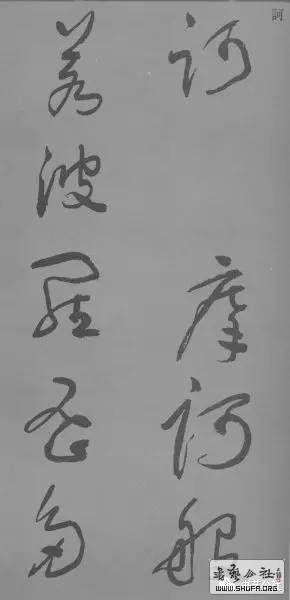 訶
訶
摩訶般
若波羅蜜多
书艺公社
WWW.SHUFA.ORG